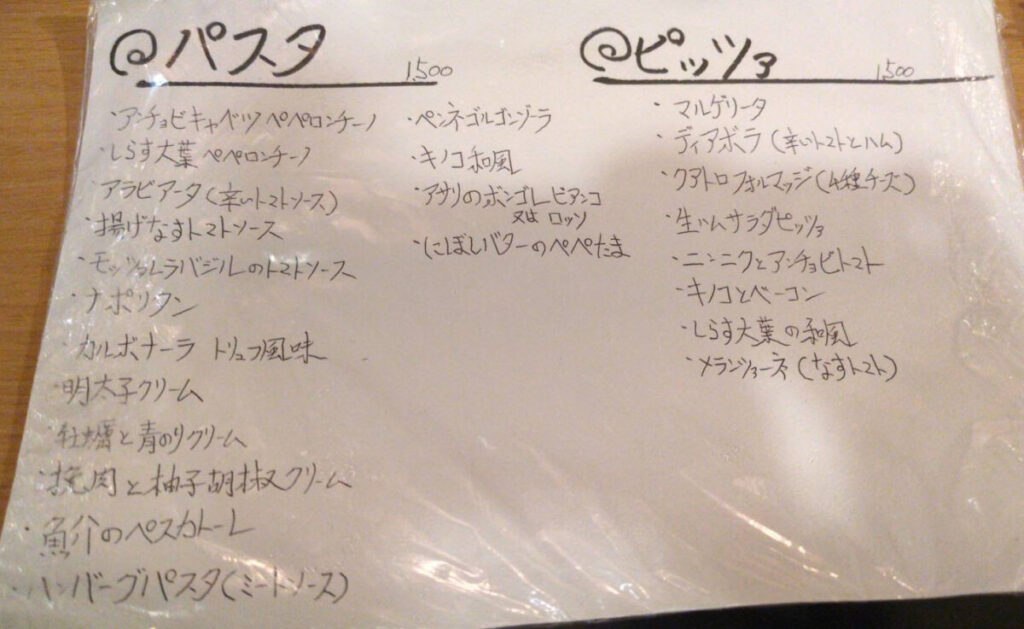 @パスタ 1,500
・アンチョビキャベツペペロンチーノ
・しらす大葉ペペロンチーノ
・アラビアータ(辛いトマトソース)
・揚げなすトマトソース
・モッツァレラバジルのトマトソース
・ナポリタン
・カルボナーラ トリュフ風味
・明太子クリーム
・牡蠣と青のりクリーム
・挽肉と柚子胡椒クリーム
・魚介のペスカトーレ
・ハンバーグパスタ(ミートソース)
・ペンネゴルゴンゾーラ
・キノコ和風
・アサリのボンゴレビアンコ
又は ロッソ
・にぼしバターのペペたま
@ピッツァ 1,500
・マルゲリータ
・ディアボラ(辛いトマトとハム)
・クアトロフォルマッジ(4種チーズ)
・生ハムサラダピッツァ
・ニンニクとアンチョビトマト
・キノコとベーコン
・しらす大葉の和風
・メランジョーネ(なすトマト)